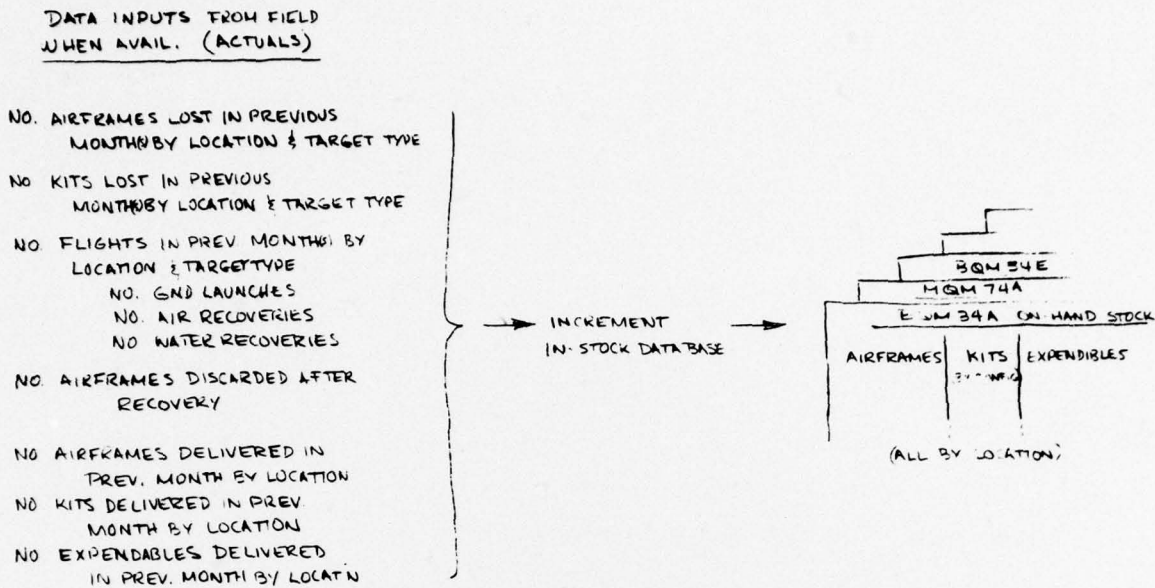 DATA INPUTS FROM FIELD
WHEN AVAIL. (ACTUALS)
NO. AIRFRAMES LOST IN PREVIOUS
MONTH BY LOCATION & TARGET TYPE
NO KITS LOST IN PREVIOUS
MONTH BY LOCATION & TARGET TYPE
NO. FLIGHTS IN PREV. MONTH BY
LOCATION & TARGET TYPE
NO. GND LAUNCHES
NO. AIR RECOVERIES
NO WATER RECOVERIES
NO. AIRFRAMES DISCARDED AFTER
RECOVERY
NO AIRFRAMES DELIVERED IN
PREV. MONTH BY LOCATION
NO KITS DELIVERED IN PREV.
MONTH BY LOCATION
NO EXPENDABLES DELIVERED
IN PREV. MONTH BY LOCAT'N
INCREMENT
IN-STOCK DATABASE
BQM 34E
MQM 74A
34A ON-HAND STOCK
AIRFRAMES KITS EXPENDIBLES
BY CONFIG
(ALL BY LOCATION)